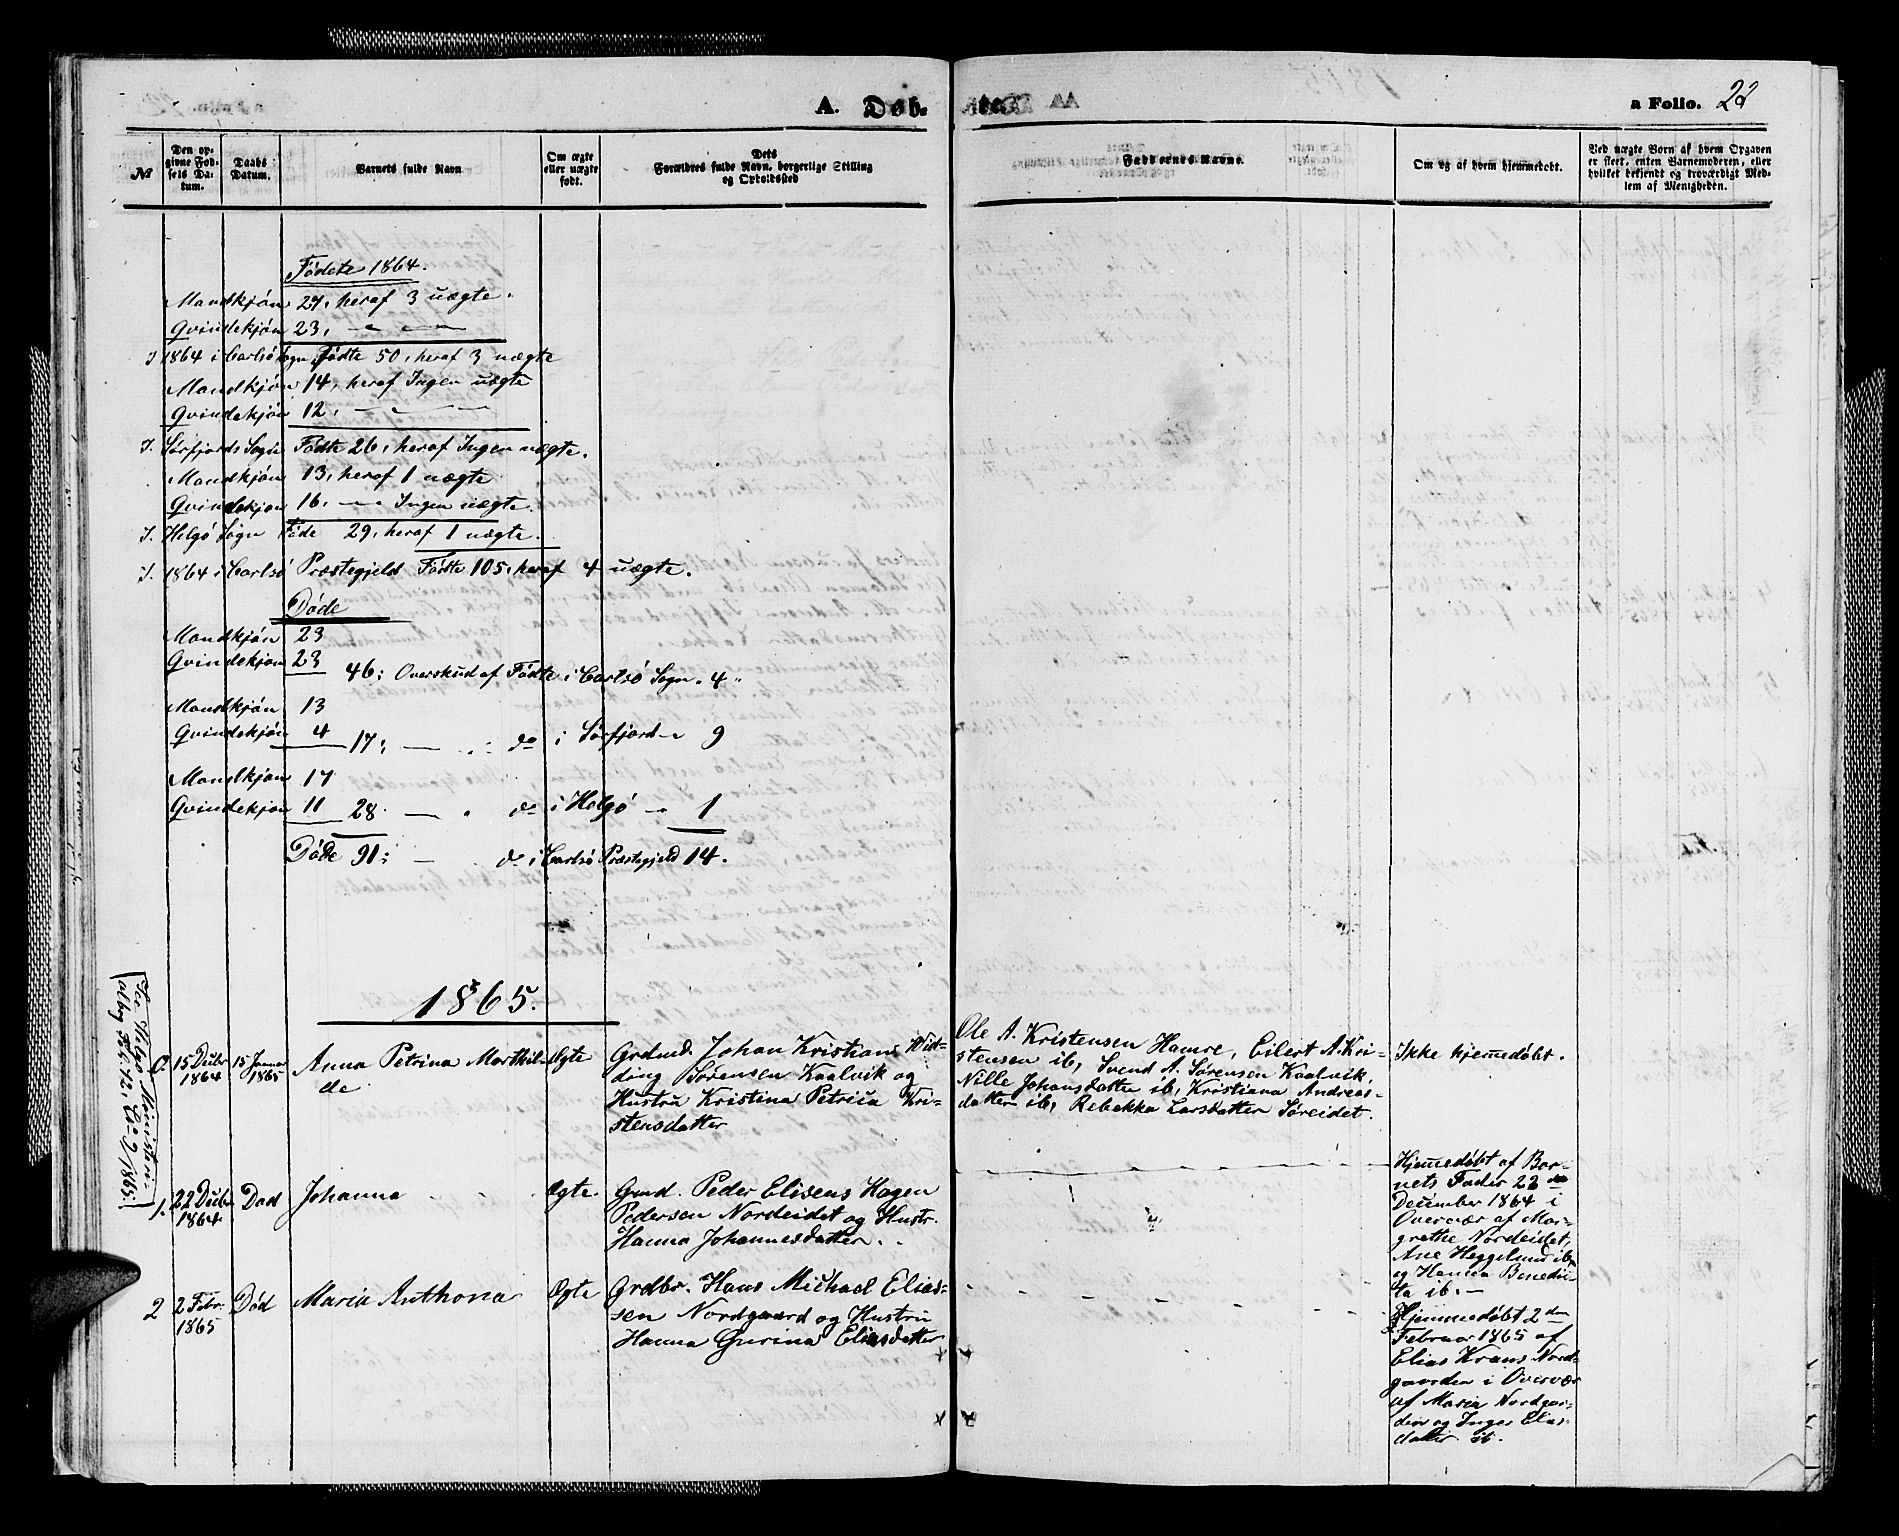 A. Döb- te. a Folio. 22
№
Den op-
givne Fød-
sels Da-
tum.
Daabs
Datum.
Barnets fulde Navn
Om ægte
eller uægte
født.
Dets
Forældres fulde Navn, borgerlige Stilling
og Opholdssted
Faddernes Navne.
Om og af hvem hjemmedøbt.
Ved uægte Børn af hvem Opgaven
er skeet, enten Barnemoderen, eller
hvilket bekjendt og troværdigt Med-
lem af Menigheden.
Födete 1864.
Mandkjön 27, heraf 3 uægte.
Qvindekjön 23, — — —
I 1864 i Carlsö Sogn Födte 50, heraf 3 uægte
Mandkjön 14, heraf Ingen uægte
Qvindekjön 12, — — —
I. Sörfjords Sogn Födte 26, heraf Ingen uægte.
Mandkjön 13, heraf 1 uægte
Qvindekjön 16, — Ingen uægte.
I. Helgö Sogn Föde 29, heraf 1 uægte.
I. 1864 i Carlsö Præstegjeld Födte 105, heraf 4 uægte.
Döde
Mandkjön 23
Qvindekjön 23
46; Overskud af Födte i Carlsö Sogn. 4 "
Mandkjön 13
Qvindekjön 4
17; — do i Sörfjord — 9
Mandkjön 17
Qvindekjön 11 28 — do i Helgö — 1
Döde 91; — do i Carlsö Præstegjeld 14.
1865.
0. 15 Decbr 1864
15 Januar 1865
Anna Petrina Mathil-
de
Ægte
Grdmd. Johan Kristian Wid-
ding Sörensen Kaalvik og
Hustru Kristina Petrica Kri-
stensdatter
Ole A. Kristensen Hamre, Eilert A. Kri-
stensen ib, Svend A. Sörensen Kaalvik,
Nille Johansdatter ib, Kristiana Andreas-
datter ib, Rebekka Larsdatter Söreidet.
Ikke hjemedöbt.
1. 22 Decbr 1864
Död
Johanna
Ægte
Gmd. Peder Elisens Hagen
Pedersen Nordeidet og Hustr.
Hanna Johannesdatter.
Hjemedöbt af Bar-
nets Fader 22 de
December 1864 i
Overvær af Mar-
grethe Nordeidet,
Ane Heggelund ib,
og Hanna Benedic-
ta ib. —
2 2 Febr. 1865
Död
Maria Anthona
Ægte
Grdbr. Hans Michael Elias-
sen Nordgaard og Hustru
Hanna Gurina Eliasdatter
Hjemmedöbt 2 den
Februar 1865 af
Elias Krans Nord-
gaarden i Overvær
af Maria Nordgar-
den og Inger Elias-
datter ib.